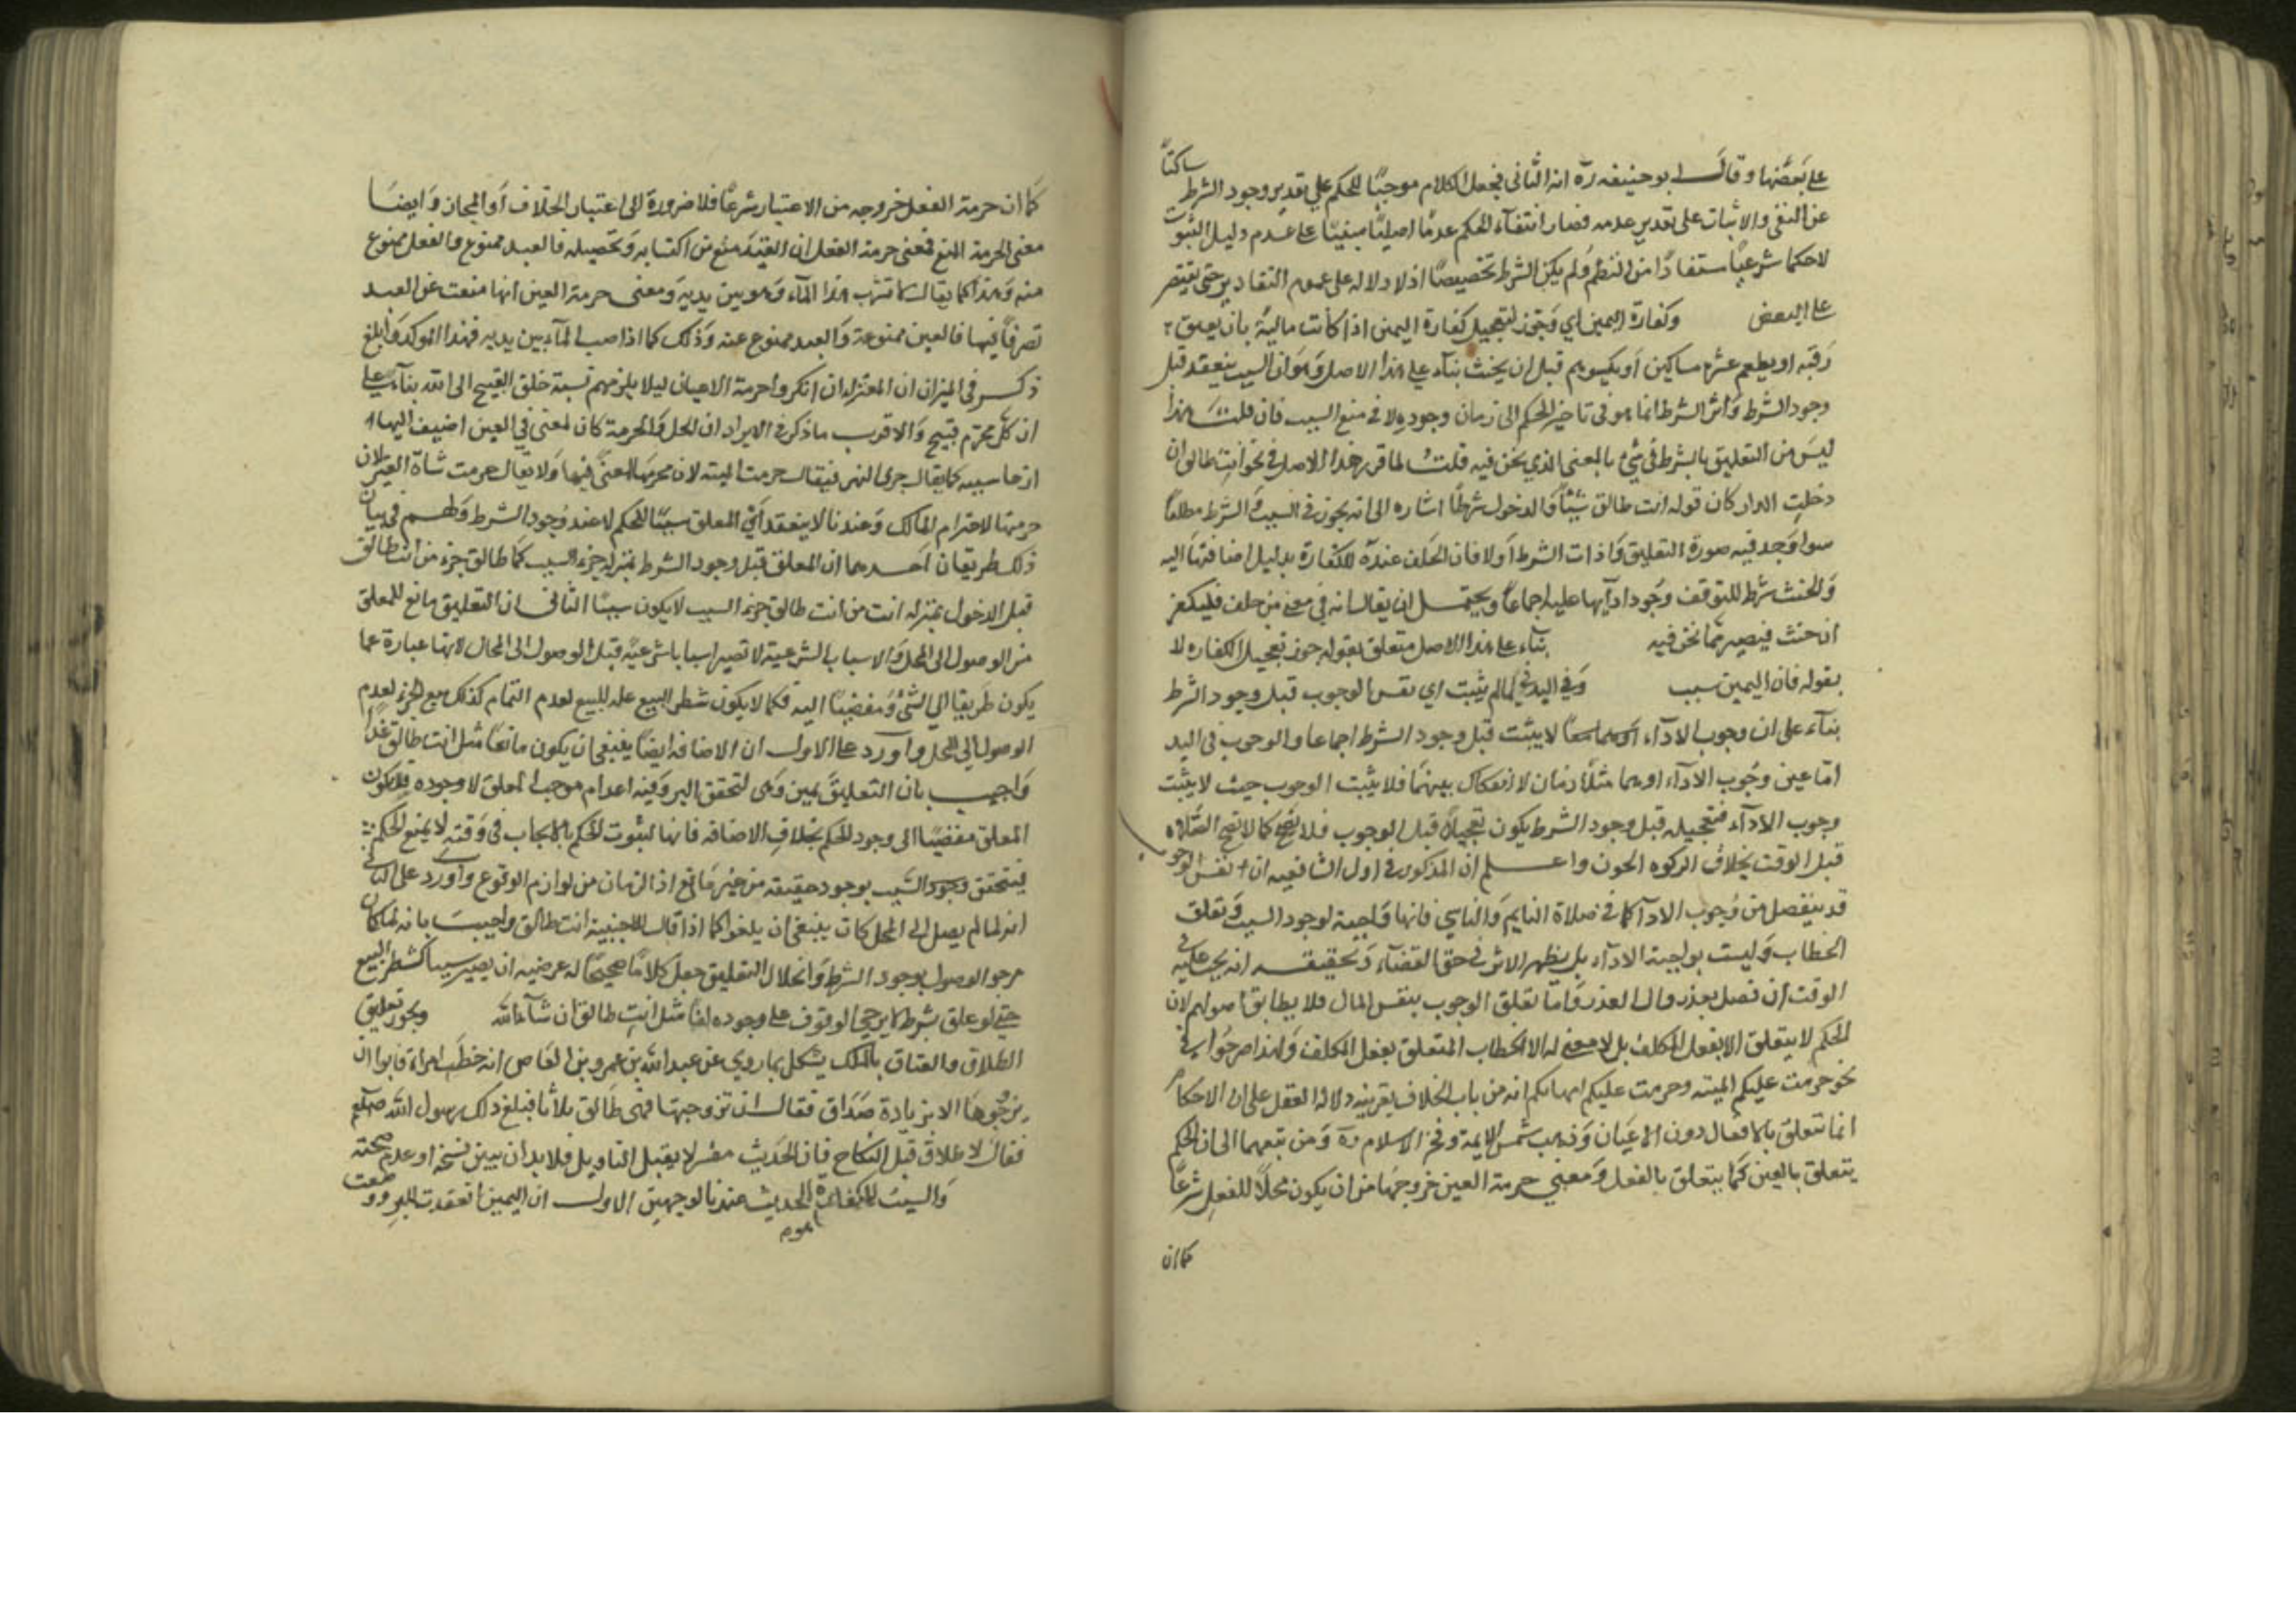 على بعضها وقال ابو حنيفه ره انه الثاني فجعل الكلام موجبًا للحكم علي تقدير وجود الشرط ساكتاً
عن النفي والاثبات على تقدير عدمه فصار انتفآء الحكم عدمًا اصليًا مبنيًا على عدم دليل الثبوت
لاحكما شرعيًا مستفادًا من النظم ولم يكن الشرط تخصيصًا اذ لا دلاله على عموم التقادير حتى يقتصر
على البعض وكفارة اليمين اي وجوز تعجيل كفارة اليمين اذا كانت مالية بان يعتق
رقبه او يطعم عشرة مساكين او يكسوهم قبل ان يحنث بنآء علي هذا الاصل وهو ان السبب ينعقد قبل
وجود الشرط واثر الشرط انما هو في تاخير الحكم الى زمان وجوده لا في منع السبب فان قلت هذا
ليس من التعليق بالشرط في شئ بالمعنى الذي نحن فيه قلت لما قرر هذا الاصل في نحو انت طالق ان
دخلت الدار كان قوله انت طالق سببًا والدخول شرطًا اشاره الى انه يجوز في السبب والشرط مطلقاً
سوا وجد فيه صورة التعليق واذات الشرط اولا فان الحلف عنده للكفارة بدليل اضافتها اليه
والحنث شرط للتوقف وجود ادآيها عليه اجماعًا ويحتمل ان يقال انه في معنى من حلف فليكفر
ان حنث فيصير مما نحن فيه بنآء على هذا الاصل متعلق بقوله جوز تعجيل الكفاره لا
بقوله فان اليمين سبب وفي البدني لما لم يثبت اي نفس الوجوب قبل وجود الشرط
بنآء على ان وجوب الادآء لا يثبت قبل وجود الشرط اجماعا والوجوب في البد
اما عين وجوب الادآء او هما مثلا زمان لا انفكاك بينهما فلا يثبت الوجوب حيث لا يثبت
وجوب الادآء فتعجيله قبل وجود الشرط يكون تعجيلاً قبل الوجوب فلا يصح كما لا تصح الصلاة
قبل الوقت بخلاف الزكوه الحون واعلم ان المذكور في اول الشافعيه ان نفس الوجوب
قد ينفصل من وجوب الادآ كما في صلاة النايم والناسي فانها واجبة لوجود السبب وتعلق
الخطاب وليست بواجبة الادآء بل يظهر الاثر في حق القضآء وتحقيقه انه يجب عليه في
الوقت ان فصل بعذر وال العذر واما تعلق الوجوب بنفس المال فلا يطابق اصولهم لان
الحكم لا يتعلق الا بفعل المكلف بل لا معنى له الا الخطاب المتعلق بفعل المكلف ولهذا صرحوا في
نحو حرمت عليكم الميته وحرمت عليكم امهاتكم انه من باب الخلاف بقرينه دلالة العقل على ان الاحكام
انما تتعلق بالافعال دون الاعيان وذهب شمس الايمة وفخر الاسلام ره ومن تبعهما الى ان الحكم
يتعلق بالعين كما يتعلق بالفعل ومعنى حرمة العين خروجها من ان يكون محلاً للفعل شرعاً
كما ان
كما ان حرمة الفعل خروجه من الاعتبار شرعًا فلا ضرورة الى اعتبار الخلاف او المجاز وايضا
معنى الحرمة المنع فمعنى حرمة الفعل ان العبد منع من اكتسابه وتحصيله فالعبد ممنوع والفعل ممنوع
منه وهذا كما يقال لا تشرب هذا المآء وهو بين يديه ومعنى حرمة العين انها منعت عن العبد
تصرفًا فيها فالعين ممنوعة والعبد ممنوع عنه وذلك كما اذا صب المآء بين يديه فهذا اوكد وابلغ
ذكر في الميزان ان المعتزلة ان انكروا حرمة الاعيان ليلا يلزمهم نسبة خلق القبيح الى الله بنآء على
ان كل محرم قبيح والاقرب ما ذكر في الايراد ان الحل والحرمة كان لمعنى في العين اضيف اليها
لانها سببه كما يقال جرى النهر فيقال حرمت الميته لان تحريمها لمعنًى فيها ولا يقال حرمت شاة الغير لان
حرمتها لاحترام المالك وعندنا لا ينعقد اي المعلق سببًا للحكم لا عند وجود الشرط ولهم في بيان
ذلك طريقان احدهما ان المعلق قبل وجود الشرط بمنزلة جزء السبب كما طالق جزء من انت طالق
قبل الدخول بمنزله انت من انت طالق جزء السبب لا يكون سببًا الثاني ان التعليق مانع للمعلق
من الوصول الى المحل والاسباب الشرعية لا تصير اسبابا شرعية قبل الوصول الى المحال لانها عبارة عما
يكون طريقا الي الشئ ومفضيًا اليه فكما لا يكون شطر البيع علة للبيع لعدم التمام كذلك بيع الحر لعدم
الوصول الي المحل واورد على الاول ان الاضافه ايضًا ينبغي ان يكون مانعًا مثل انت طالق غدًا
واجيب بان التعليق يمين وهي لتحقق البر وفيه اعدام موجب المعلق لا وجوده فلا يكون
المعلق مفضيًا الى وجود الحكم بخلاف الاضافه فانها لثبوت الحكم بالايجاب في وقته لا يمنع الحكم
فيتحقق وجود السبب بوجود حقيقته من غير مانع اذ الزمان من لوازم الوقوع واورد على الثاني
انه لما لم يصل الى المحل كان ينبغي ان يلغو كما اذا قال للاجنبية انت طالق واجيب بانه لما كان
مرجو الوصول بوجود الشرط وانحلال التعليق جعل كلامًا صحيحًا له عرضيه ان يصير سببا كشطر البيع
حتى لو علق بشرط لا يرجى الوقوف علي وجوده لغا مثل انت طالق ان شآء الله ويجوز تعليق
الطلاق والعتاق بالملك يشكل بما روي عن عبد الله بن عمرو بن العاص انه خطب امراة فابوا ان
يزوجوها الا بزيادة صداق فقال ان تزوجتها فهي طالق ثلاثا فبلغ ذلك رسول الله صلعم
فقال لا طلاق قبل النكاح فان الحديث مفسر لا يقبل التاويل فلا بد ان يبين نسخه او عدم صحته
والسبب للكفارة الحديث عندنا لوجهين الاول ان اليمين انعقدت للبر ووضعت